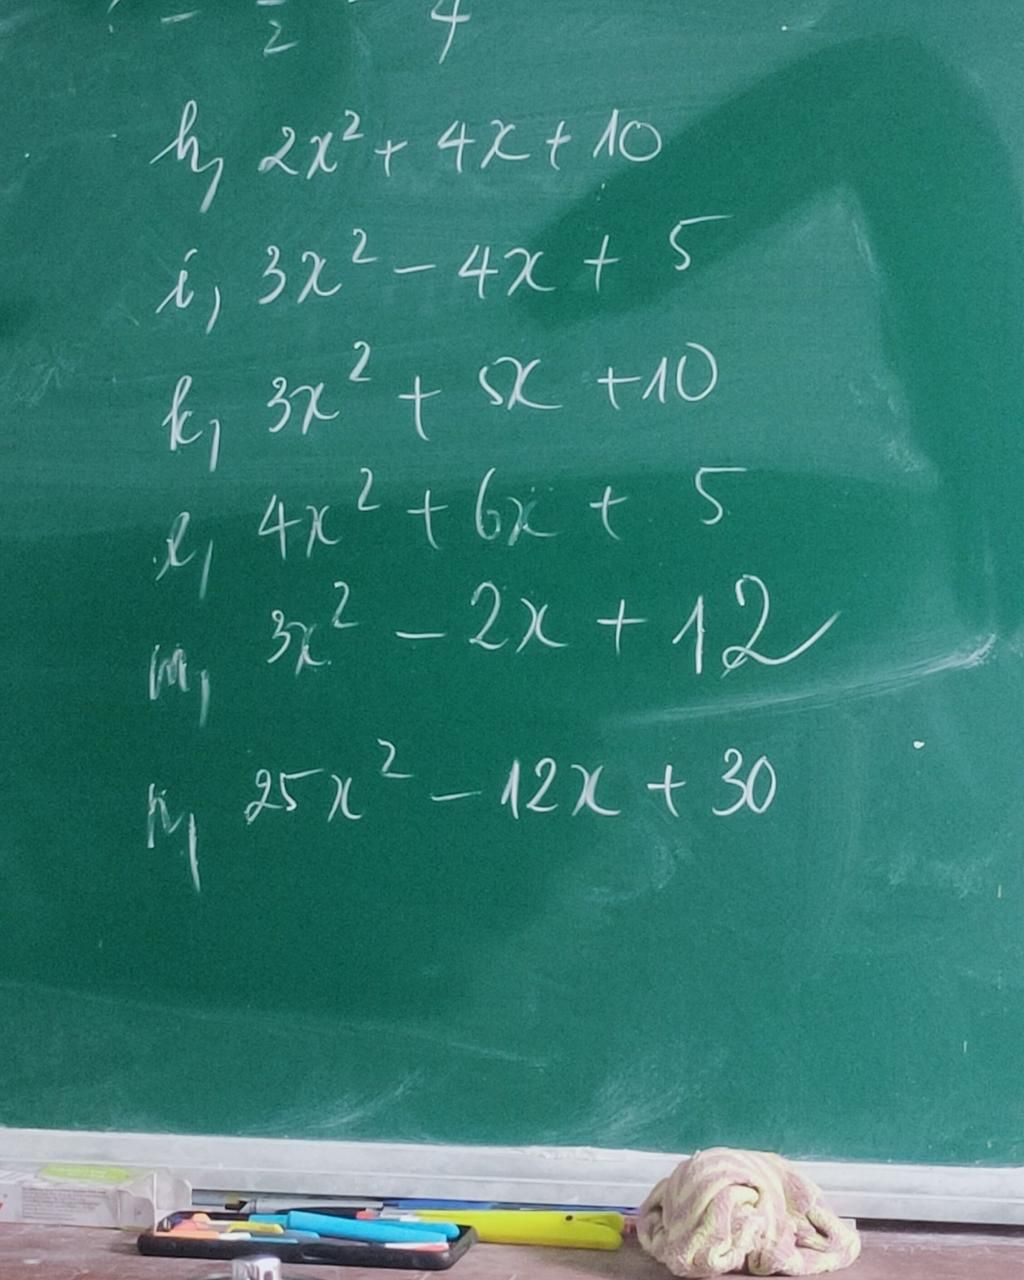 - 2 4
h, 2x² + 4x + 10
i, 3x² - 4x + 5
k, 3x² + 5x + 10
l, 4x² + 6x + 5
m, 3x² - 2x + 12
n, 25x² - 12x + 30